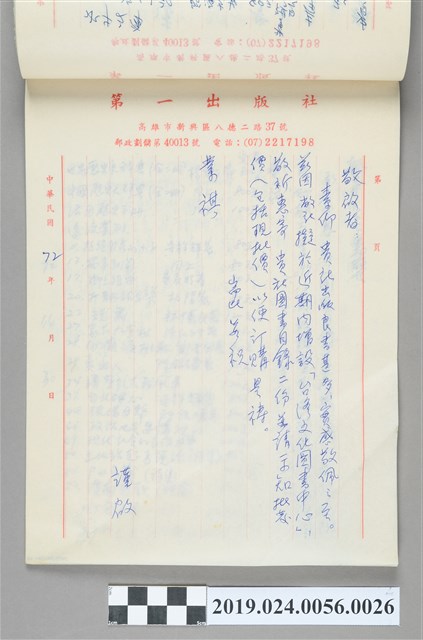 郵政劃儲第40013號　電話：(07)2217198
第一出版社
高雄市新興區八德二路37號
郵政劃儲第40013號　電話：(07)2217198
第　頁
敬啟者
素仰　貴社出版良書甚多，實感敬佩之至。
茲因敝社擬於近期內增設「台灣文化圖書中心」，
敬祈惠寄　貴社圖書目錄二份並請示知批發
價（包括現批價）以便訂購是禱。
崇此　敬祝
業祺
謹啟
中華民國　72　年　月　日
2019.024.0056.0026